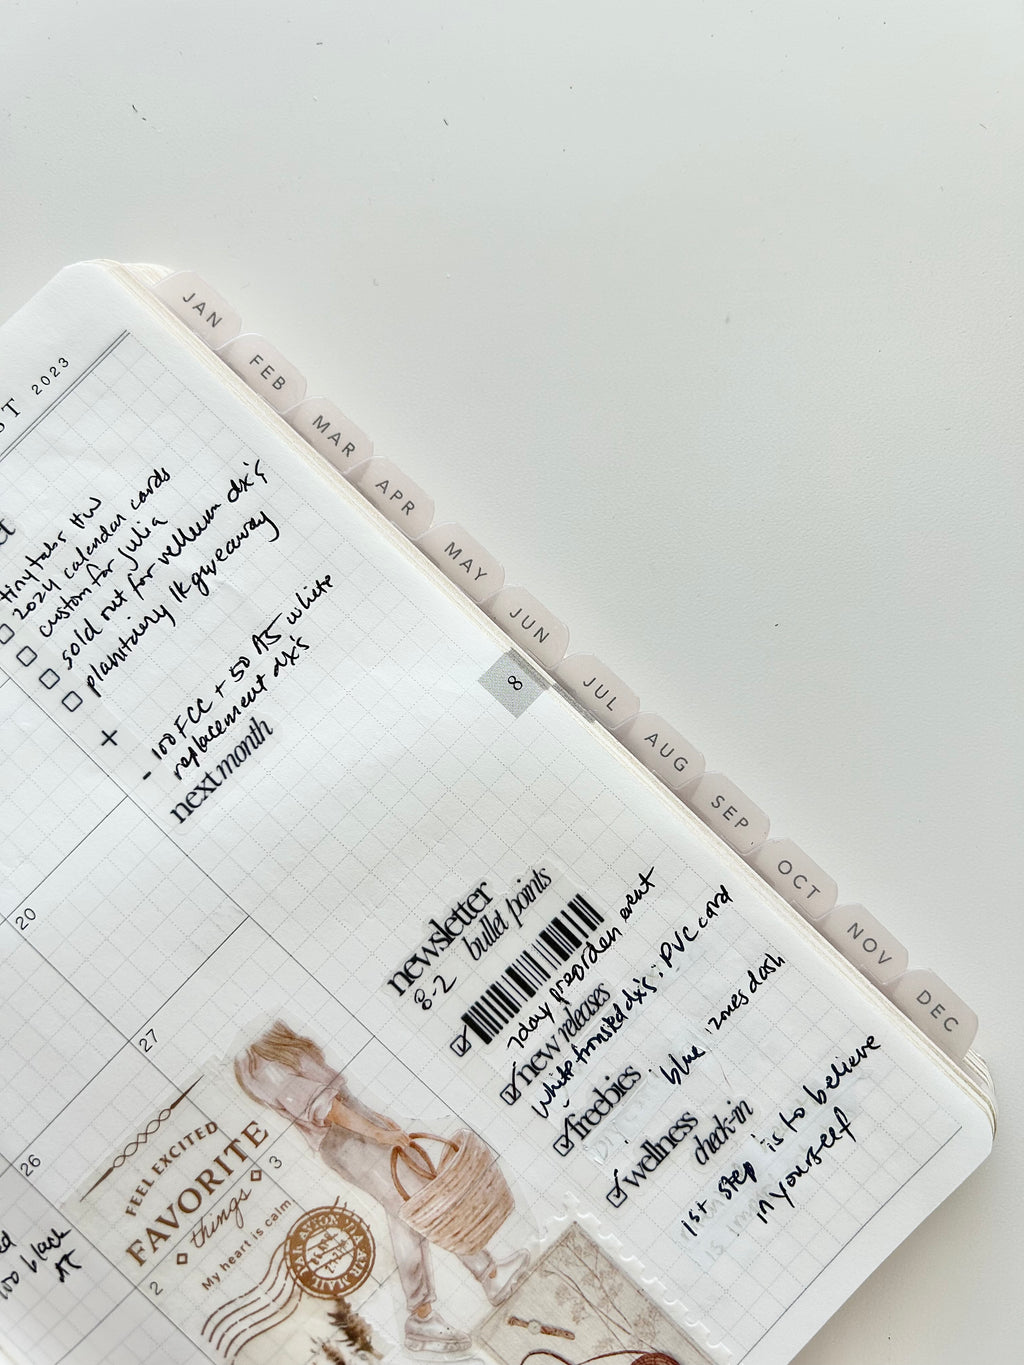 ST 2023
tiny tabs HW
2024 calendar cards
custom for julia
sold out for vellum dx's
planitairy 1k giveaway
+
- 100 FCC + 50 A5 white
replacement dx's
next month
20
27
26
3
2
oo black
newsletter
8-2 bullet points
7day preorder event
new releases
white frosted dx's; PVC card
freebies
blue zones dash
wellness
check-in
1st step is to believe
in yourself
FEEL EXCITED
FAVORITE
things
My heart is calm
PAR AVION
AIR MAIL
8
JAN
FEB
MAR
APR
MAY
JUN
JUL
AUG
SEP
OCT
NOV
DEC